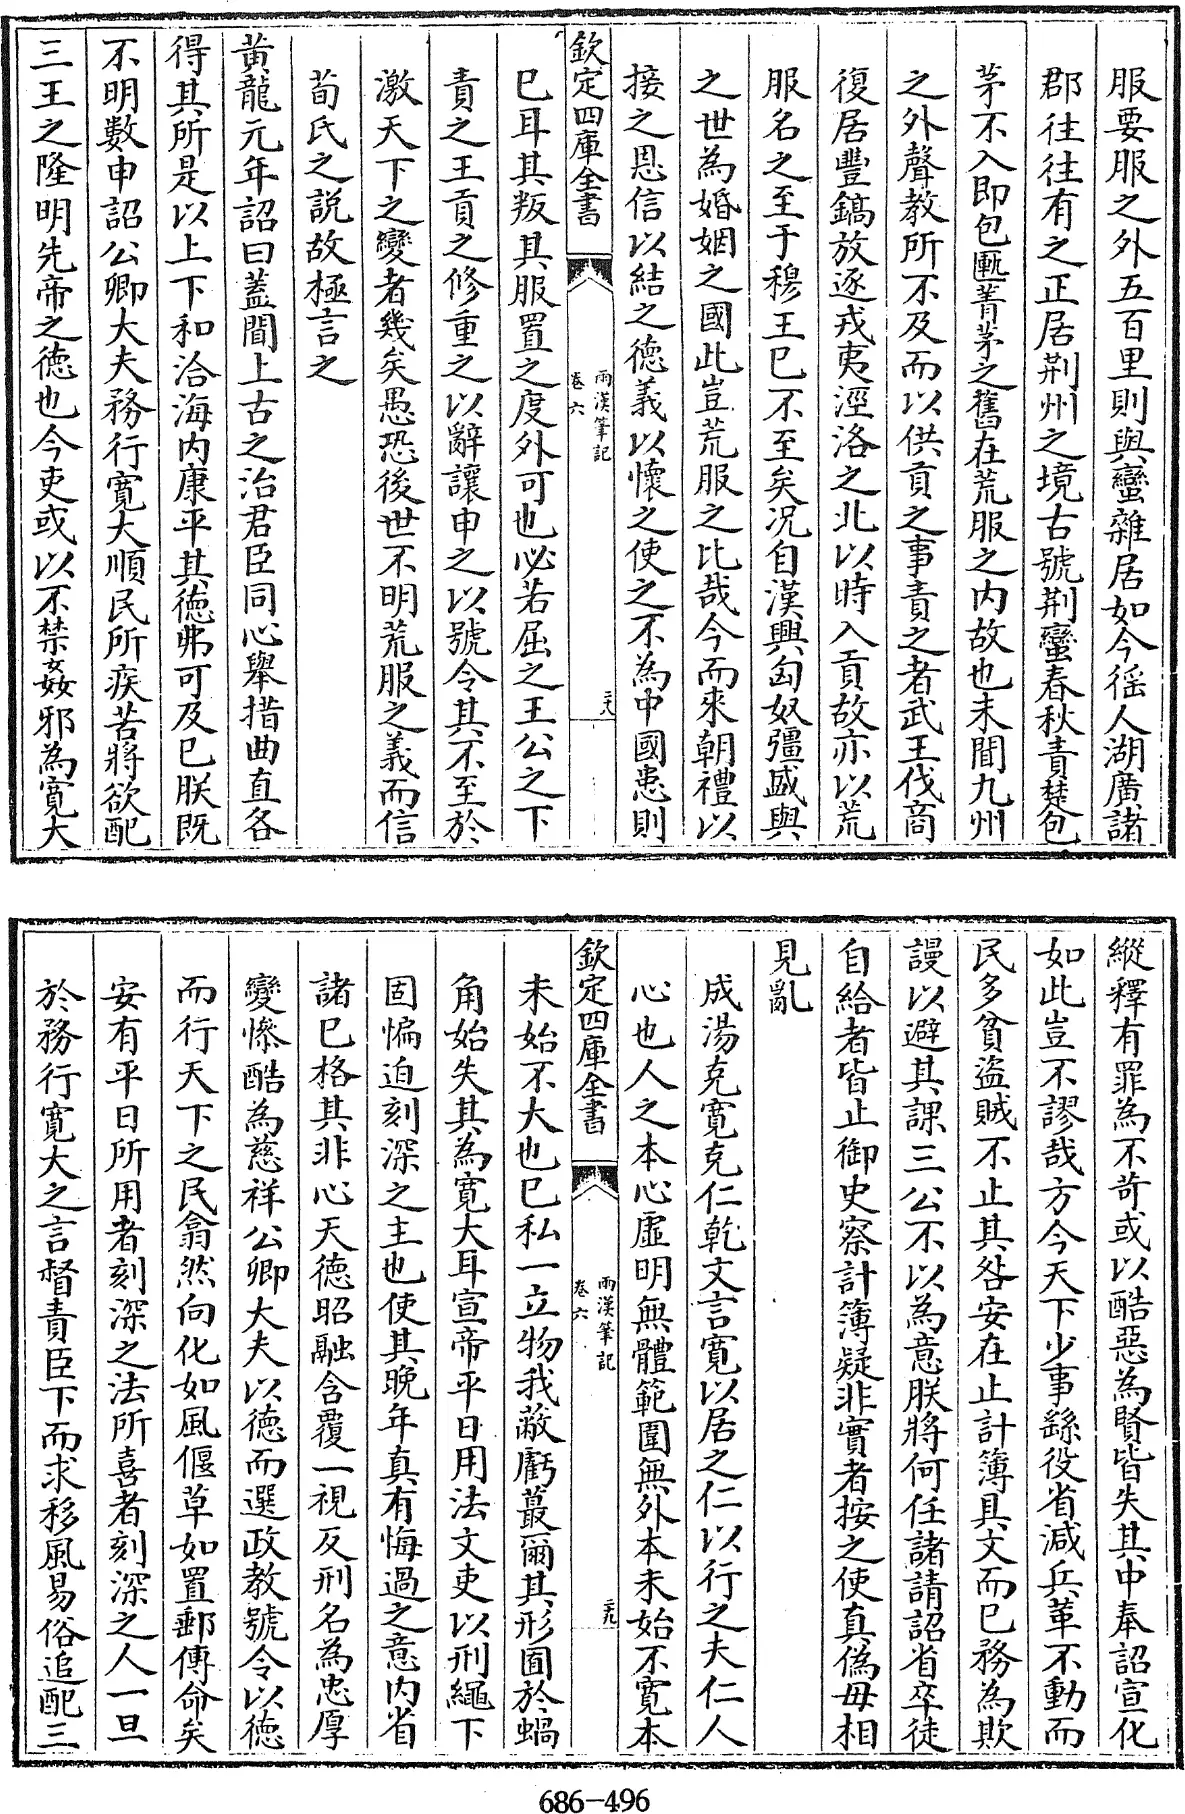 服要服之外五百里則與蠻雜居如今徭人湖廣諸
郡往往有之正居荆州之境古號荆蠻春秋責楚包
茅不入即包匭菁茅之舊在荒服之内故也未聞九州
之外聲教所不及而以供貢之事責之者武王伐商
復居豐鎬放逐戎夷涇洛之北以時入貢故亦以荒
服名之至于穆王已不至矣況自漢興匈奴彊盛與
之世為婚姻之國此豈荒服之比哉今而來朝禮以
接之恩信以結之德義以懷之使之不為中國患則
欽定四庫全書
兩漢筆記
卷六
二十八
已耳其叛其服置之度外可也必若屈之王公之下
責之王貢之修重之以辭讓申之以號令其不至於
激天下之變者幾矣愚恐後世不明荒服之義而信
荀氏之説故極言之
黄龍元年詔曰蓋聞上古之治君臣同心舉措曲直各
得其所是以上下和洽海内康平其德弗可及已朕既
不明數申詔公卿大夫務行寛大順民所疾苦將欲配
三王之隆明先帝之德也今吏或以不禁姦邪為寛大
縱釋有罪為不苛或以酷惡為賢皆失其中奉詔宣化
如此豈不謬哉方今天下少事繇役省減兵革不動而
民多貧盜賊不止其咎安在止計簿具文而已務為欺
謾以避其課三公不以為意朕將何任諸請詔省卒徒
自給者皆止御史察計簿疑非實者按之使真偽毋相
見亂
成湯克寛克仁乾文言寛以居之仁以行之夫仁人
心也人之本心虛明無體範圍無外本未始不寛本
欽定四庫全書
兩漢筆記
卷六
二十九
未始不大也已私一立物我蔽虧蕞爾其形囿於蝸
角始失其為寛大耳宣帝平日用法文吏以刑繩下
固惼迫刻深之主也使其晚年真有悔過之意内省
諸已格其非心天德昭融含覆一視反刑名為忠厚
變慘酷為慈祥公卿大夫以德而選政教號令以德
而行天下之民翕然向化如風偃草如置郵傳命矣
安有平日所用者刻深之法所喜者刻深之人一旦
於務行寛大之言督責臣下而求移風易俗追配三
686-496